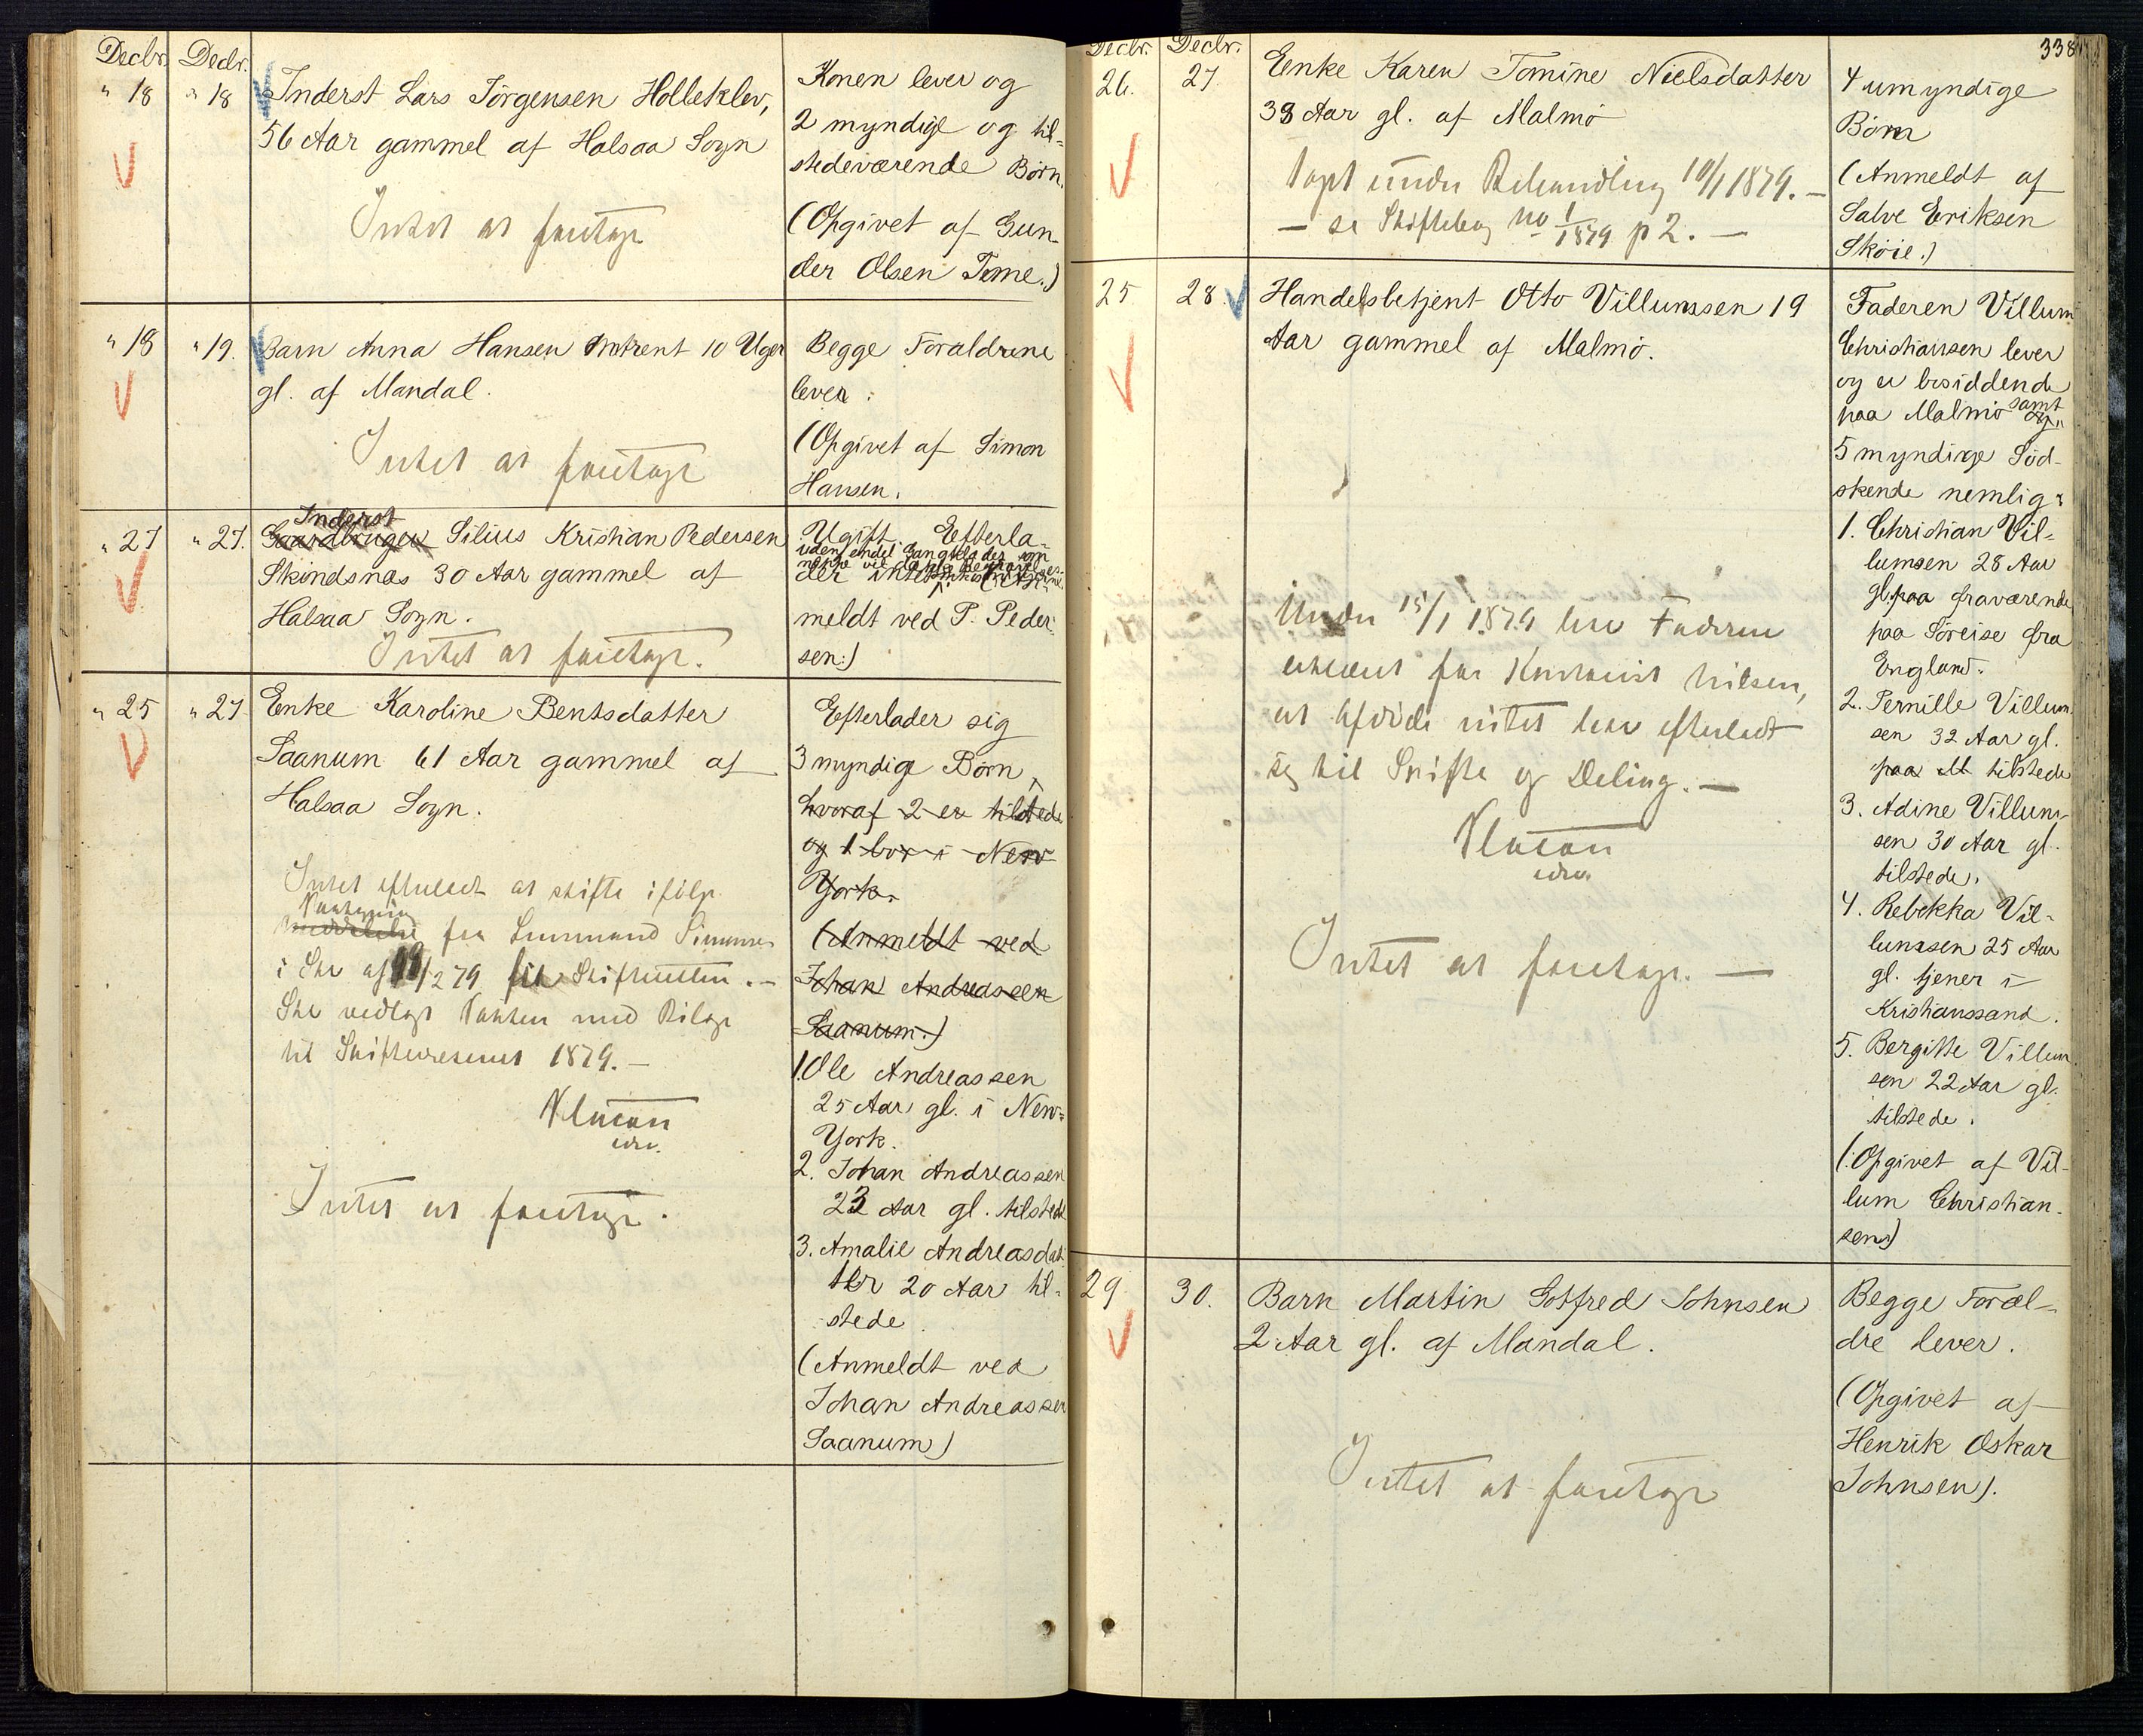 Decbr. Decbr.
" 18 " 18
Inderst Lars Jörgensen Holleklev,
56 Aar gammel af Halsaa Sogn
Intet at foretage
Konen lever og
2 myndige og til-
stedeværende Börn.
(Opgivet af Gun-
der Olsen Tome.)
" 18 " 19.
Barn Anna Hansen omtrent 10 Uger
gl. af Mandal.
Intet at foretage
Begge Forældrene
lever.
(Opgivet af Simon
Hansen.
" 27 " 27.
Inderst
Gaardbruger Silius Kristian Pedersen
Skindsnæs 30 Aar gammel af
Halsaa Sogn.
Intet at foretage.
Ugift. Efterla-
uden endel Gangklæder som
der intet
meldt ved P. Peder-
sen.)
" 25 " 27
Enke Karoline Bentsdatter
Saanum 61 Aar gammel af
Halsaa Sogn.
Intet efterladt at skifte ifölge
fra Lensmand Simonsen
i Skr af /2 79 til Skifteretten.-
Skr vedlagt med Bilage
til 1879.-
Intet at foretage.
Efterlader sig
3 myndige Börn,
hvoraf 2 er tilstede
og 1 bor i New
York.
(Anmeldt ved
Johan Andreassen
Saanum.)
1. Ole Andreassen
25 Aar gl. i New-
York.
2. Johan Andreassen
23 Aar gl. tilstede
3. Amalie Andreasdat-
ter 20 Aar til-
stede.
(Anmeldt ved
Johan Andreassen
Saanum)
338
Decbr. Decbr.
26. 27.
Enke Karen Tomine Nielsdatter
38 Aar gl. af Malmö
Tagt under Behandling 10/1 1879.-
- se Skiftebog No 1/1879 p 2.-
4 umyndige
Börn
(Anmeldt af
Salve Eriksen
Sköie.)
25 28.
Handelsbetjent Otto Villumssen 19
Aar gammel af Malmö.
Under 15/1 1879 har Faderen
erklæret for Nilsen,
at Afdöde intet har efterladt
sig til Skifte og Deling.-
Intet at foretage.-
Faderen Villum
Christiansen lever
og er bosiddende
paa Malmö samt
og
5 myndige Söd-
skende nemlig:
1. Christian Vil-
lumsen 28 Aar
gl. paa fraværende
paa Söreise fra
England.
2. Pernille Villum-
sen 32 Aar gl.
paa M tilstede
3. Adine Villum-
sen 30 Aar gl.
tilstede.
4. Rebekka Vil-
lumssen 25 Aar
gl. tjener i
Kristianssand.
5. Bergitte Villum-
sen 22 Aar gl.
tilstede.
(Opgivet af Vil-
lum Christian-
sen)
29 30.
Barn Martin Gotfred Johnsen
2 Aar gl. af Mandal.
Intet at foretage
Begge Foræl-
dre lever.
(Opgivet af
Henrik Oskar
Johnsen).